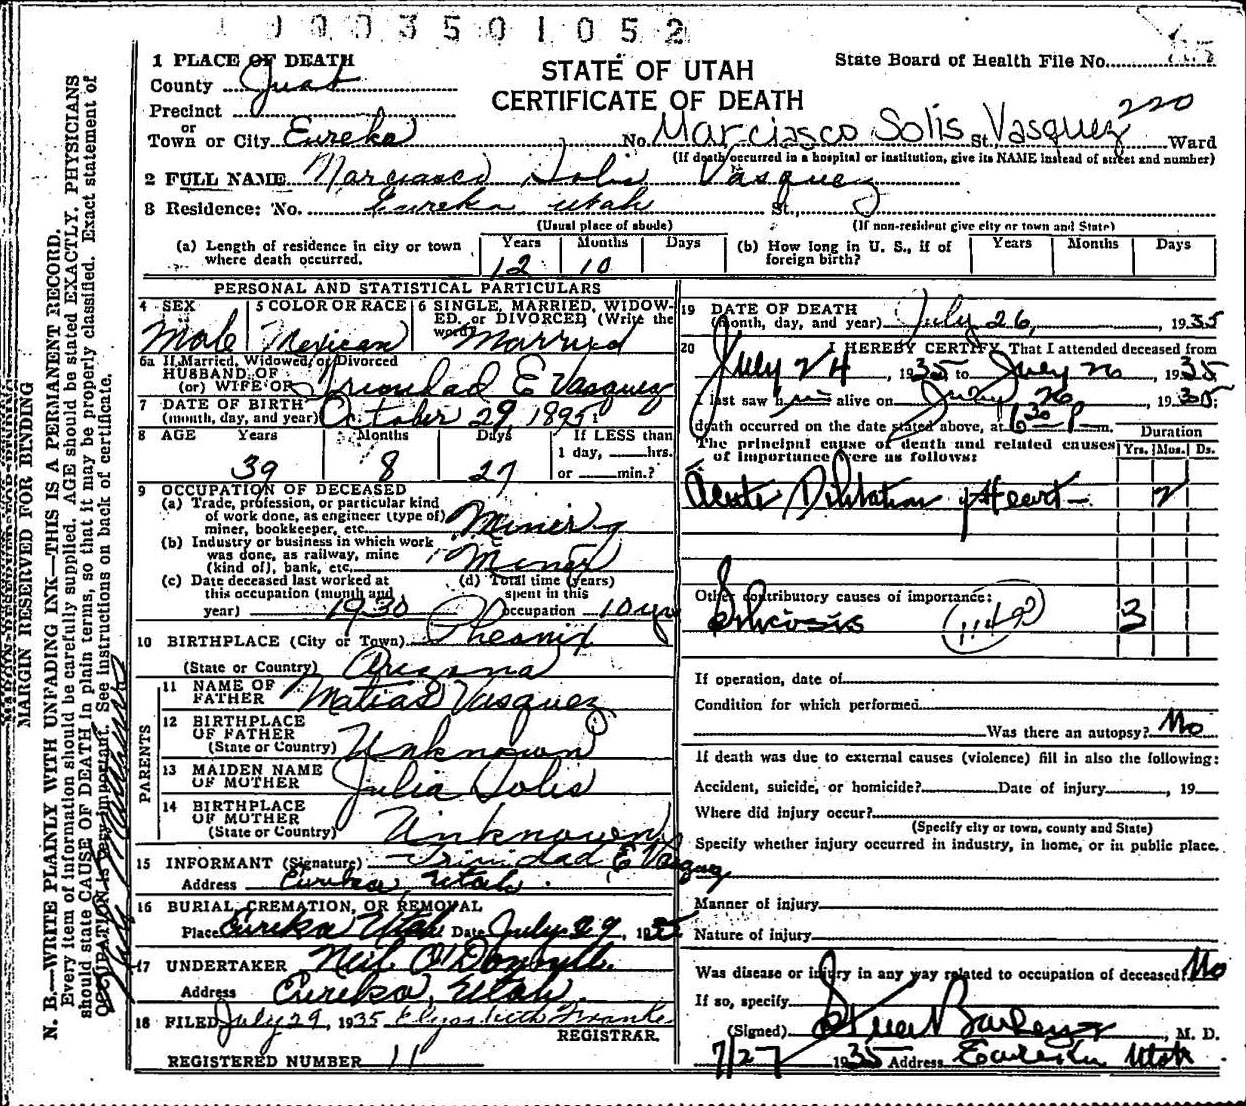 1003501052
1 PLACE OF DEATH
STATE OF UTAH
CERTIFICATE OF DEATH
State Board of Health File No.
County Juab
Precinct
or
Town or City Eureka No. Marciasco Solis St. Vasquez 220 Ward
(If death occurred in a hospital or institution, give its NAME instead of street and number)
2 FULL NAME Marciasco Solis Vasquez
3 Residence: No. Eureka Utah St.,
(Usual place of abode) (If non-resident give city or town and State)
(a) Length of residence in city or town where death occurred. Years 12 Months 10 Days
(b) How long in U. S., if of foreign birth? Years Months Days
PERSONAL AND STATISTICAL PARTICULARS
4 SEX Male
5 COLOR OR RACE Mexican
6 SINGLE, MARRIED, WIDOWED, or DIVORCED (Write the word) Married
6a If Married, Widowed, or Divorced
HUSBAND OF
(or) WIFE OF Trinidad E Vasquez
7 DATE OF BIRTH
(month, day, and year) October 29, 1895
8 AGE Years 39 Months 8 Days 27
If LESS than
1 day, hrs.
or min.?
9 OCCUPATION OF DECEASED
(a) Trade, profession, or particular kind
of work done, as engineer (type of)
miner, bookkeeper, etc. Mining
(b) Industry or business in which work
was done, as railway, mine
(kind of), bank, etc. Miner
(c) Date deceased last worked at
this occupation (month and
year) 1930
(d) Total time (years)
spent in this
occupation 10 yrs
10 BIRTHPLACE (City or Town) Pheonix
(State or Country) Arizona
PARENTS
11 NAME OF
FATHER Matias Vasquez
12 BIRTHPLACE
OF FATHER
(State or Country) Unknown
13 MAIDEN NAME
OF MOTHER Julia Solis
14 BIRTHPLACE
OF MOTHER
(State or Country) Unknown
15 INFORMANT (Signature) Trinidad E Vasquez
Address Eureka, Utah.
16 BURIAL, CREMATION, OR REMOVAL
Place Eureka Utah Date July 29, 1935
17 UNDERTAKER Neil O'Donnell
Address Eureka, Utah
18 FILED July 29, 1935 Elizabeth Franke
REGISTRAR.
REGISTERED NUMBER 11
19 DATE OF DEATH
(month, day, and year) July 26, 1935
20 I HEREBY CERTIFY That I attended deceased from
July 24, 1935, to July 26, 1935
I last saw him alive on July 26, 1935;
death occurred on the date stated above, at 6 30 P m.
The principal cause of death and related causes
of importance were as follows:
Duration
Yrs. Mos. Ds.
Acute Dilatation of Heart 2
Other contributory causes of importance:
Silicosis 3
If operation, date of
Condition for which performed
Was there an autopsy? No
If death was due to external causes (violence) fill in also the following:
Accident, suicide, or homicide? Date of injury , 19
Where did injury occur?
(Specify city or town, county and State)
Specify whether injury occurred in industry, in home, or in public place.
Manner of injury
Nature of injury
Was disease or injury in any way related to occupation of deceased? No
If so, specify
(Signed) , M. D.
7/27 1935 Address Eureka Utah
MARGIN RESERVED FOR BINDING
N. B.—WRITE PLAINLY WITH UNFADING INK—THIS IS A PERMANENT RECORD.
Every item of information should be carefully supplied. AGE should be stated EXACTLY. PHYSICIANS
should state CAUSE OF DEATH in plain terms, so that it may be properly classified. Exact statement of
OCCUPATION is very important. See instructions on back of certificate.